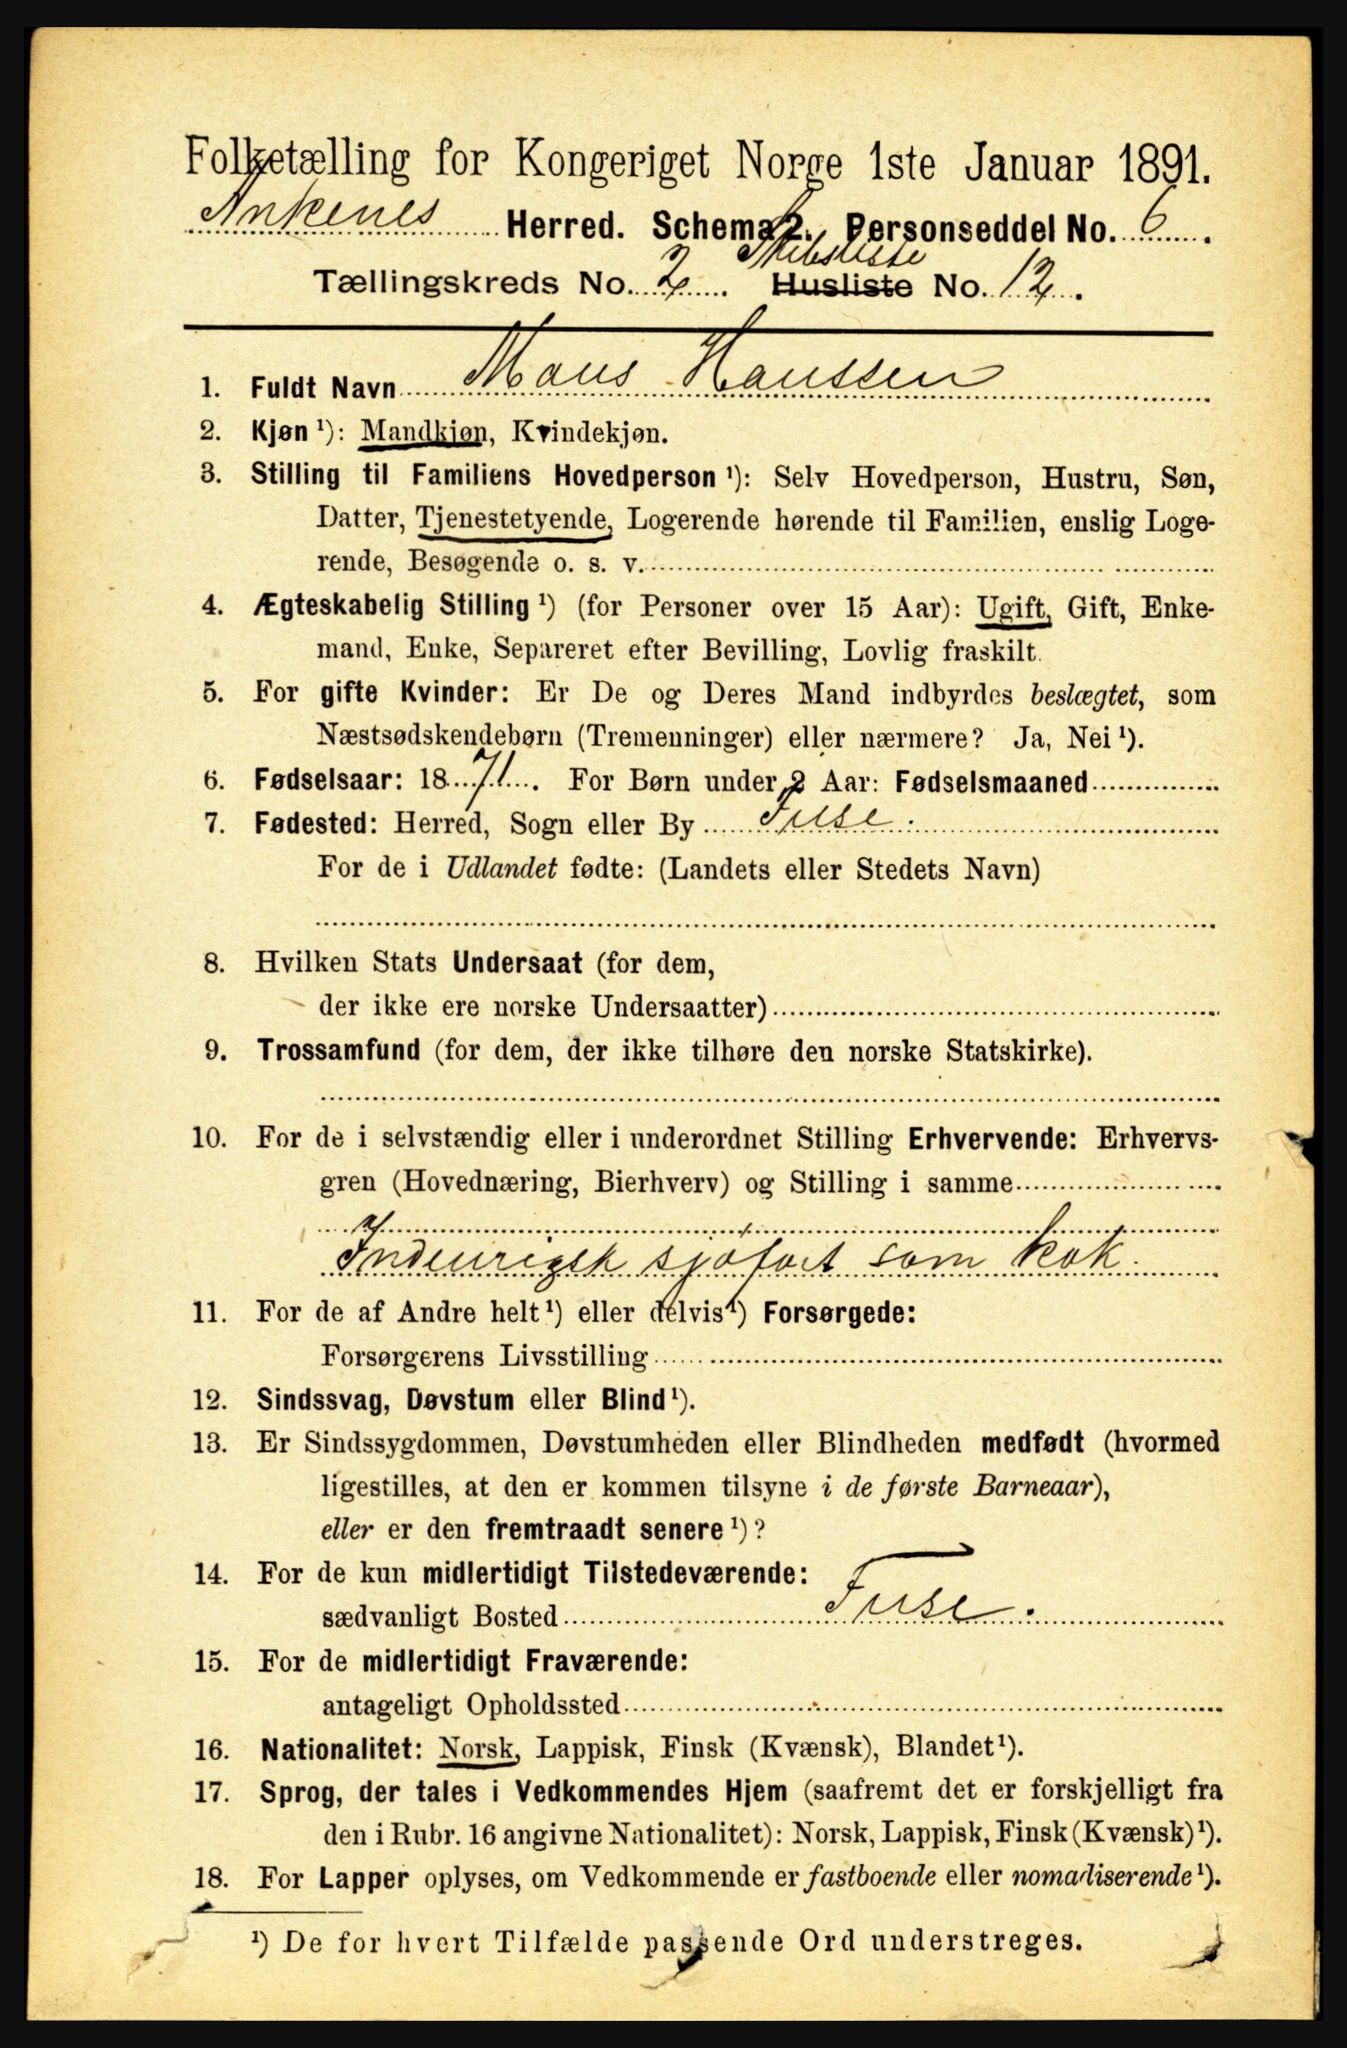 Folketælling for Kongeriget Norge 1ste Januar 1891.
Ankenes Herred. Schema 2. Personseddel No. 6.
Skibsliste
Tællingskreds No. 2. Husliste No. 12.
1. Fuldt Navn Mons Hanssen
2. Kjøn ¹): Mandkjøn, Kvindekjøn.
3. Stilling til Familiens Hovedperson ¹): Selv Hovedperson, Hustru, Søn,
Datter, Tjenestetyende, Logerende hørende til Familien, enslig Loge-
rende, Besøgende o. s. v.
4. Ægteskabelig Stilling ¹) (for Personer over 15 Aar): Ugift, Gift, Enke-
mand, Enke, Separeret efter Bevilling, Lovlig fraskilt.
5. For gifte Kvinder: Er De og Deres Mand indbyrdes beslægtet, som
Næstsødskendebørn (Tremenninger) eller nærmere? Ja, Nei ¹).
6. Fødselsaar: 1871. For Børn under 2 Aar: Fødselsmaaned
7. Fødested: Herred, Sogn eller By Fuse.
For de i Udlandet fødte: (Landets eller Stedets Navn)
8. Hvilken Stats Undersaat (for dem,
der ikke ere norske Undersaatter)
9. Trossamfund (for dem, der ikke tilhøre den norske Statskirke).
10. For de i selvstændig eller i underordnet Stilling Erhvervende: Erhvervs-
gren (Hovednæring, Bierhverv) og Stilling i samme
Indenrigsk sjøfart som kok.
11. For de af Andre helt ¹) eller delvis ¹) Forsørgede:
Forsørgerens Livsstilling
12. Sindssvag, Døvstum eller Blind ¹).
13. Er Sindssygdommen, Døvstumheden eller Blindheden medfødt (hvormed
ligestilles, at den er kommen tilsyne i de første Barneaar),
eller er den fremtraadt senere ¹)?
14. For de kun midlertidigt Tilstedeværende:
sædvanligt Bosted Fuse.
15. For de midlertidigt Fraværende:
antageligt Opholdssted
16. Nationalitet: Norsk, Lappisk, Finsk (Kvænsk), Blandet ¹).
17. Sprog, der tales i Vedkommendes Hjem (saafremt det er forskjelligt fra
den i Rubr. 16 angivne Nationalitet): Norsk, Lappisk, Finsk (Kvænsk) ¹).
18. For Lapper oplyses, om Vedkommende er fastboende eller nomadiserende ¹).
¹) De for hvert Tilfælde passende Ord understreges.